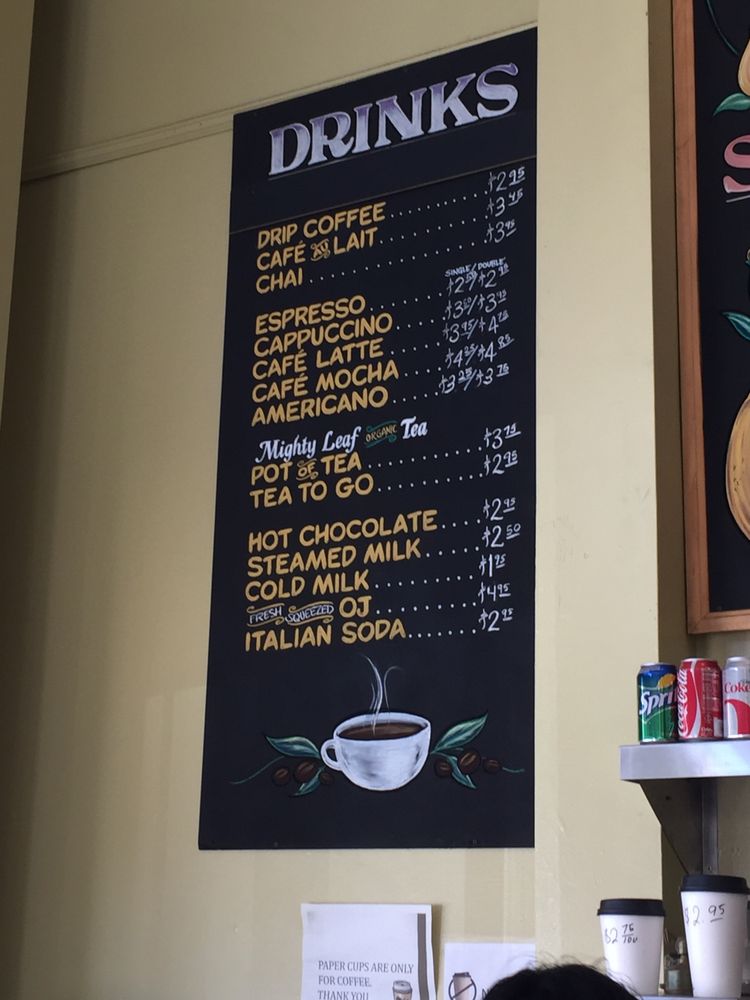 DRINKS
DRIP COFFEE........$2.95
CAFÉ AU LAIT........$3.45
CHAI........$3.95
SINGLE/DOUBLE
ESPRESSO........$2.50/$2.95
CAPPUCCINO....$3.50/$3.95
CAFÉ LATTE....$3.95/$4.75
CAFÉ MOCHA....$4.25/$4.85
AMERICANO....$3.25/$3.75
Mighty Leaf ORGANIC Tea
POT OF TEA........$3.75
TEA TO GO........$2.95
HOT CHOCOLATE....$2.95
STEAMED MILK....$2.50
COLD MILK........$1.75
FRESH SQUEEZED OJ........$4.95
ITALIAN SODA......$2.95
Sprite
Coca-Cola
Coke
$2.95
PAPER CUPS ARE ONLY
FOR COFFEE.
THANK YOU